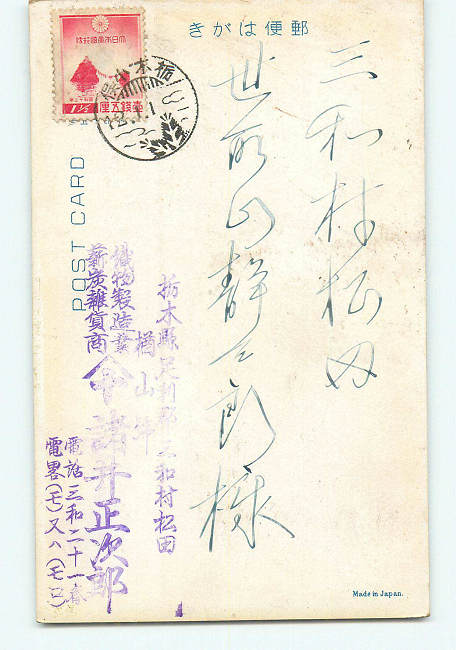 きがは便郵
三和村松田
世取山静八郎様
栃木縣足利郡三和村松田
織物製造業
薪炭雜貨商
諸井正次郎
電話三和二十一番
電畧(モ)又ハ(モロ)
POST CARD
大日本帝國郵便
壹錢五厘
1½
栃木
Made in Japan.